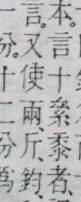 本。言十絫、黍者、
言。又使兩、斤、鈞
一分。十二分爲